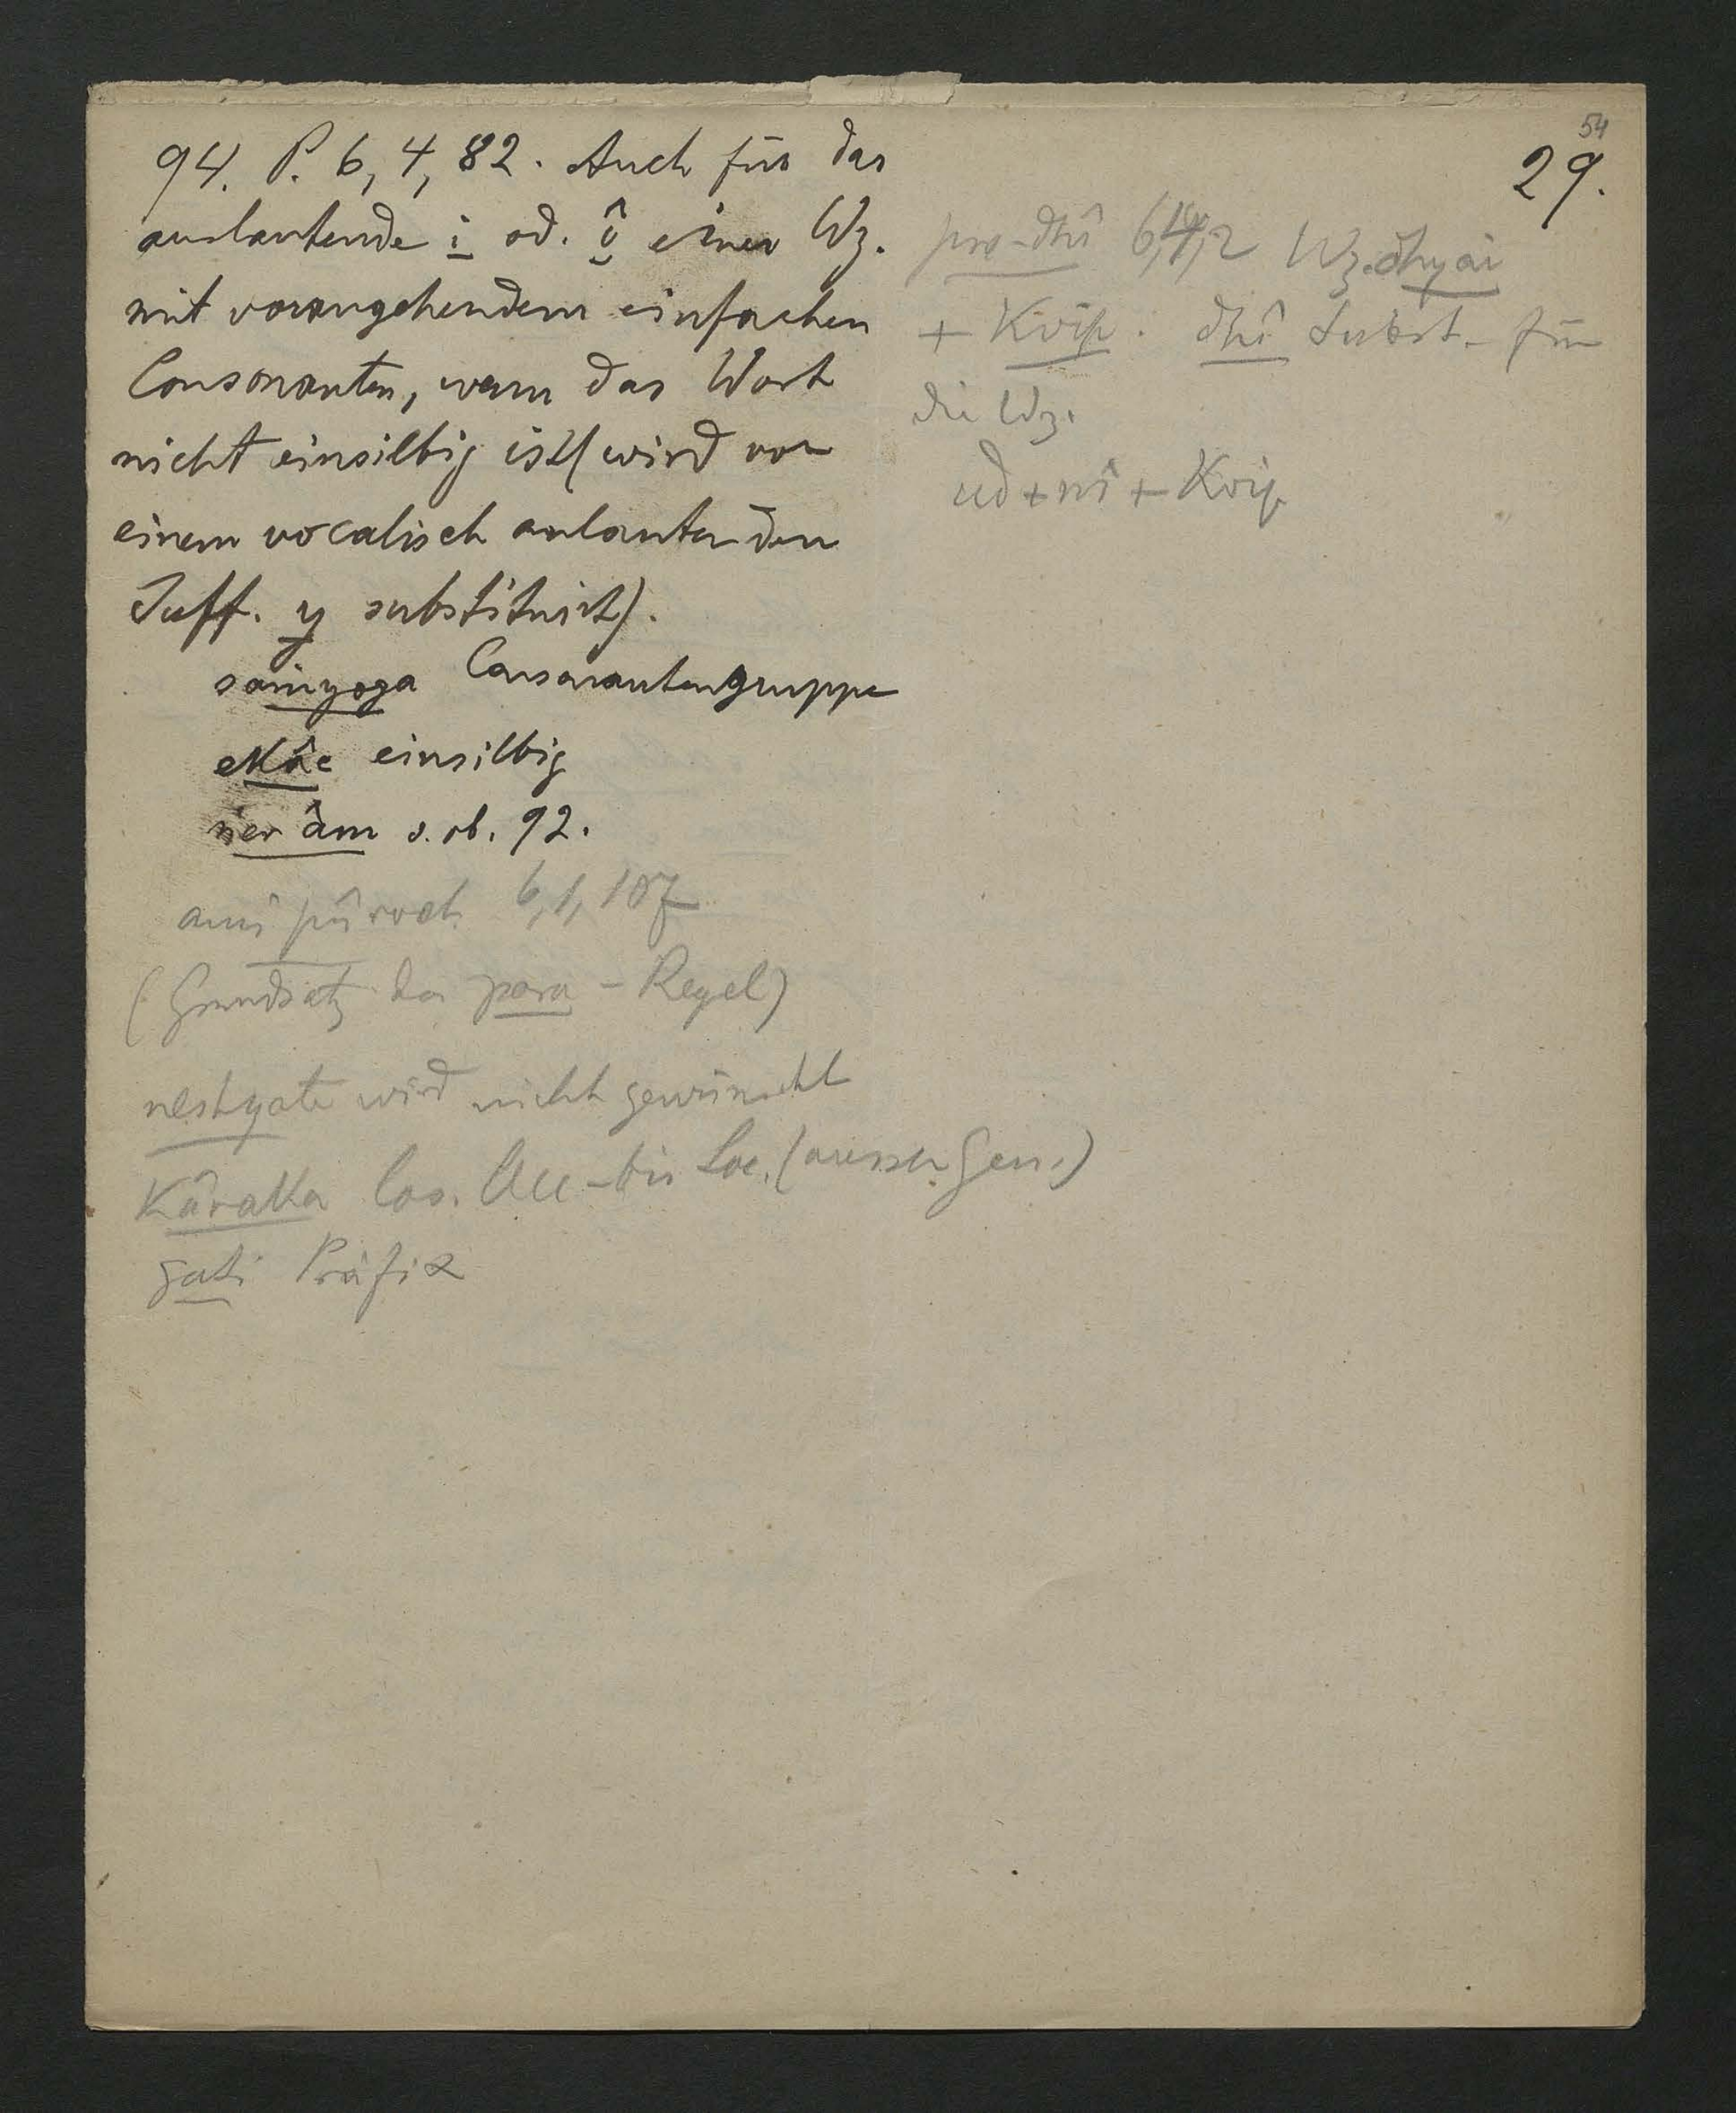 54
29.
94. P. 6, 4, 82. Auch für das
auslautende i od. î einer Wz.
mit vorangehendem einfachen
Consonanten, wenn das Wort
nicht einsilbig ist (wird vor
einem vocalisch anlautenden
Suff. y substituirt).
saṁyoga Consonantengruppe
ekâc einsilbig
ner âm s. ob. 92.
ami pûrvaḥ 6, 1, 107
(Grundsatz der para-Regel)
neshyate wird nicht gewünscht
Kâraka Cas. Acc-bis Loc. (ausser Gen.)
gati Präfix
pra-dhî 6,4,2 Wz. dhyai
+ Kvip. dhî Subst. für
die Wz.
ud + nî + Kvip